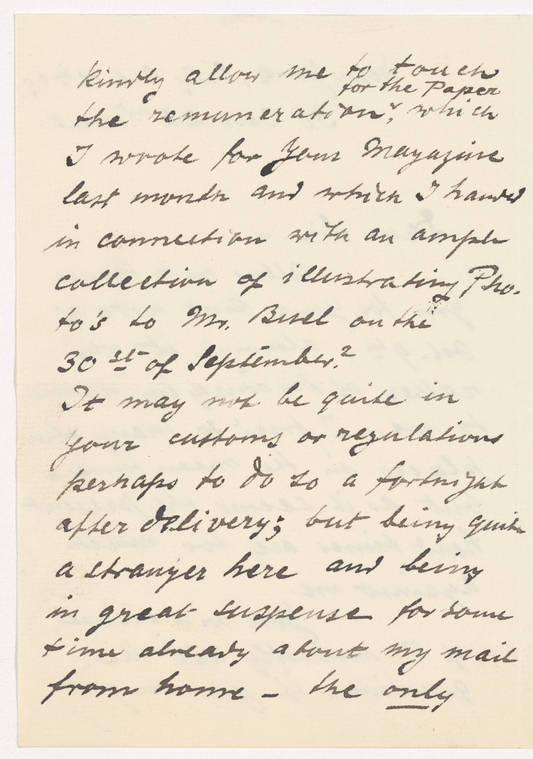 kindly allow me to touch
for the Paper
the remuneration, which
I wrote for Your Magazine
last month and which I handed
in connection with an ample
collection of illustrating Pho-
to's to Mr. Bisel on the
30st of September?
It may not be quite in
Your customs or regulations
perhaps to do so a fortnight
after delivery; but being quite
a stranger here and being
in great suspense for some
time already about my mail
from home – the only